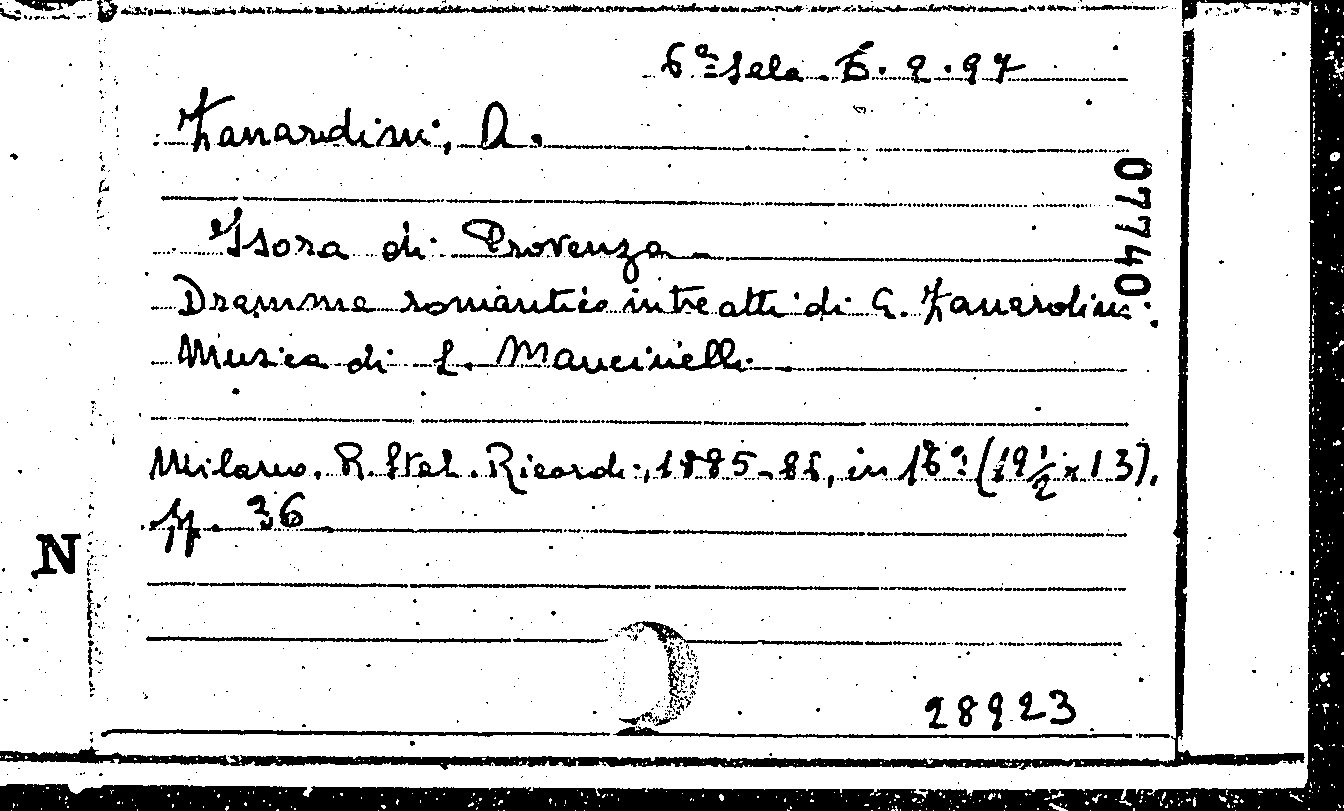 6ª Sala. E. 2. 97
Zanardini, A.
Isora di Provenza
Dramma romantico in tre atti di A. Zanardini.
Musica di L. Mancinelli.
Milano, R. Stab. Ricordi, 1885-86, in 16° (19 1/2 x 13).
pp. 36
N
28923
07740